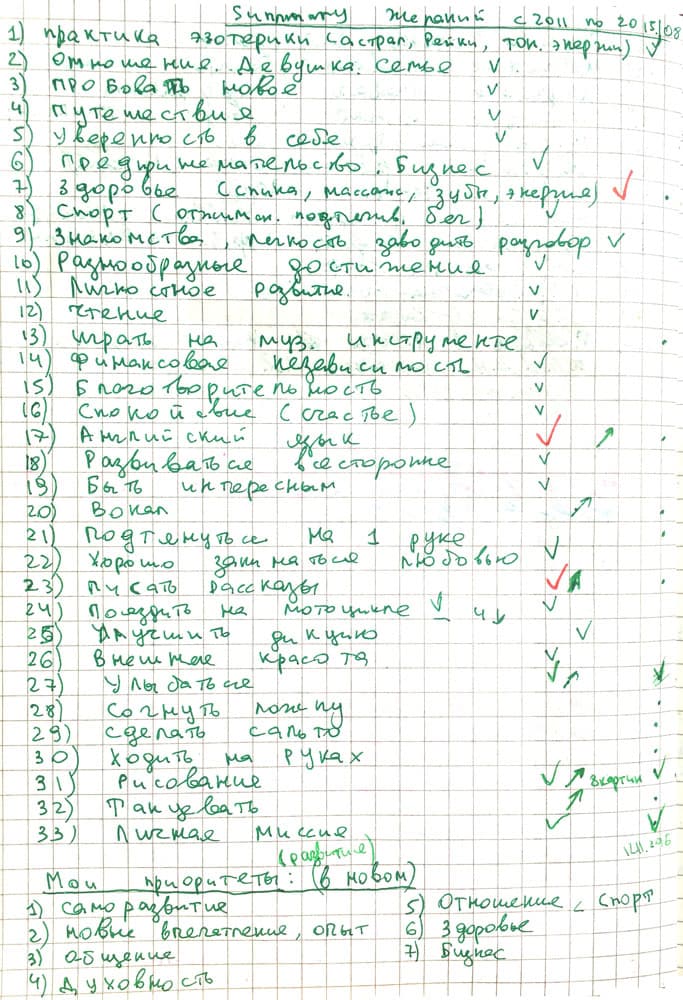 Summary желаний с 2011 по 2015/08
1) практика эзотерики (астрал, Рейки, тон. энергии) ✓
2) Отношение. Девушка. Семье ✓
3) Пробовать новое ✓
4) Путешествия ✓
5) Уверенность в себе ✓
6) Предпринимательство. Бизнес ✓
7) Здоровье (спина, массаж, зубы, энергия) ✓
8) Спорт (отжиман. подтягив, бег) ✓
9) Знакомства, легкость заводить разговор ✓
10) Разнообразные достижения ✓
11) Личностное развитие ✓
12) Чтение ✓
13) играть на муз. инструменте
14) Финансовая независимость ✓
15) Благотворительность ✓
16) Спокойствие (счастье) ✓
17) Английский язык ✓ ↗
18) Развиваться всесторонне ✓
19) Быть интересным ✓
20) Вокал ↗
21) Подтянуться на 1 руке
22) Хорошо заниматься любовью ✓
23) Писать рассказы ✓
24) Поездить на мотоцикле ✓
25) Улучшить дикцию ✓
26) Внешняя красота ✓
27) Улыбаться ✓ ↗ ✓
28) Согнуть ложку
29) Сделать сальто
30) Ходить на руках
31) Рисование ✓ ↗ 8 картин ✓
32) Танцевать ↗
33) Личная миссия ✓ ✓
(развитие)
Мои приоритеты: (в новом)
1) саморазвитие
2) новые впечатление, опыт
3) общение
4) Духовность
5) Отношение, Спорт
6) Здоровье
7) Бизнес